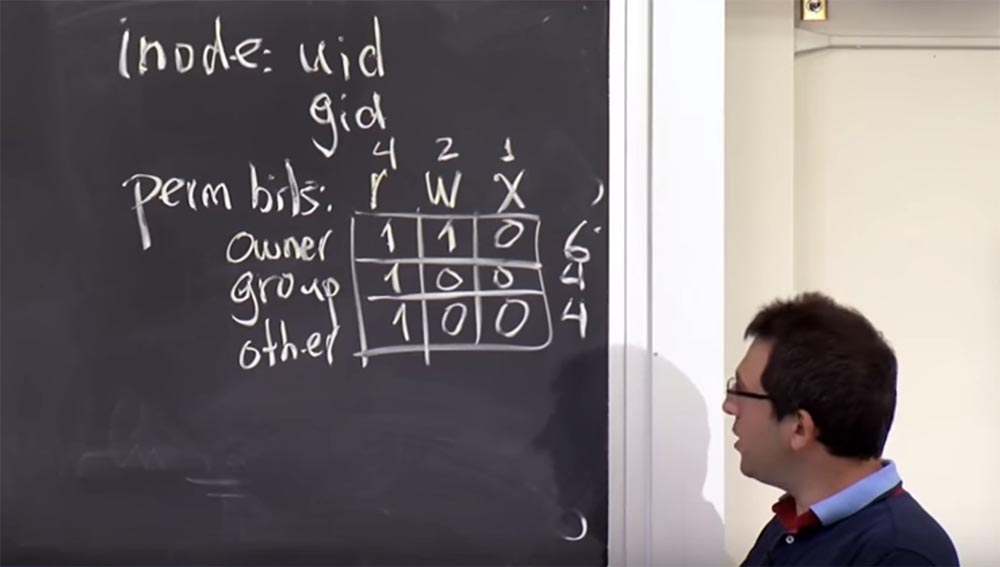 inode: uid
gid
4 2 1
perm bits: r w x
owner 1 1 0 6
group 1 0 0 4
other 1 0 0 4